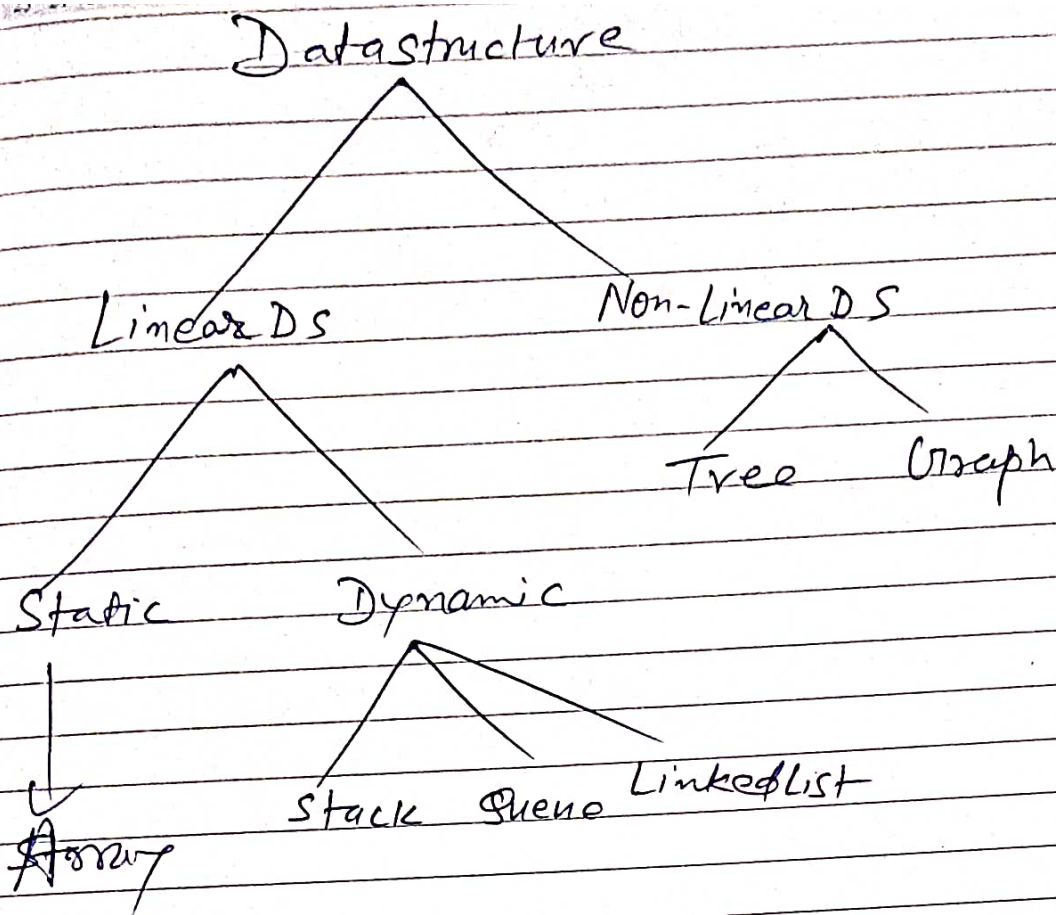 Datastructure
Linear DS
Non-Linear DS
Tree
Graph
Static
Dynamic
Stack
Queue
Linkedlist
Array